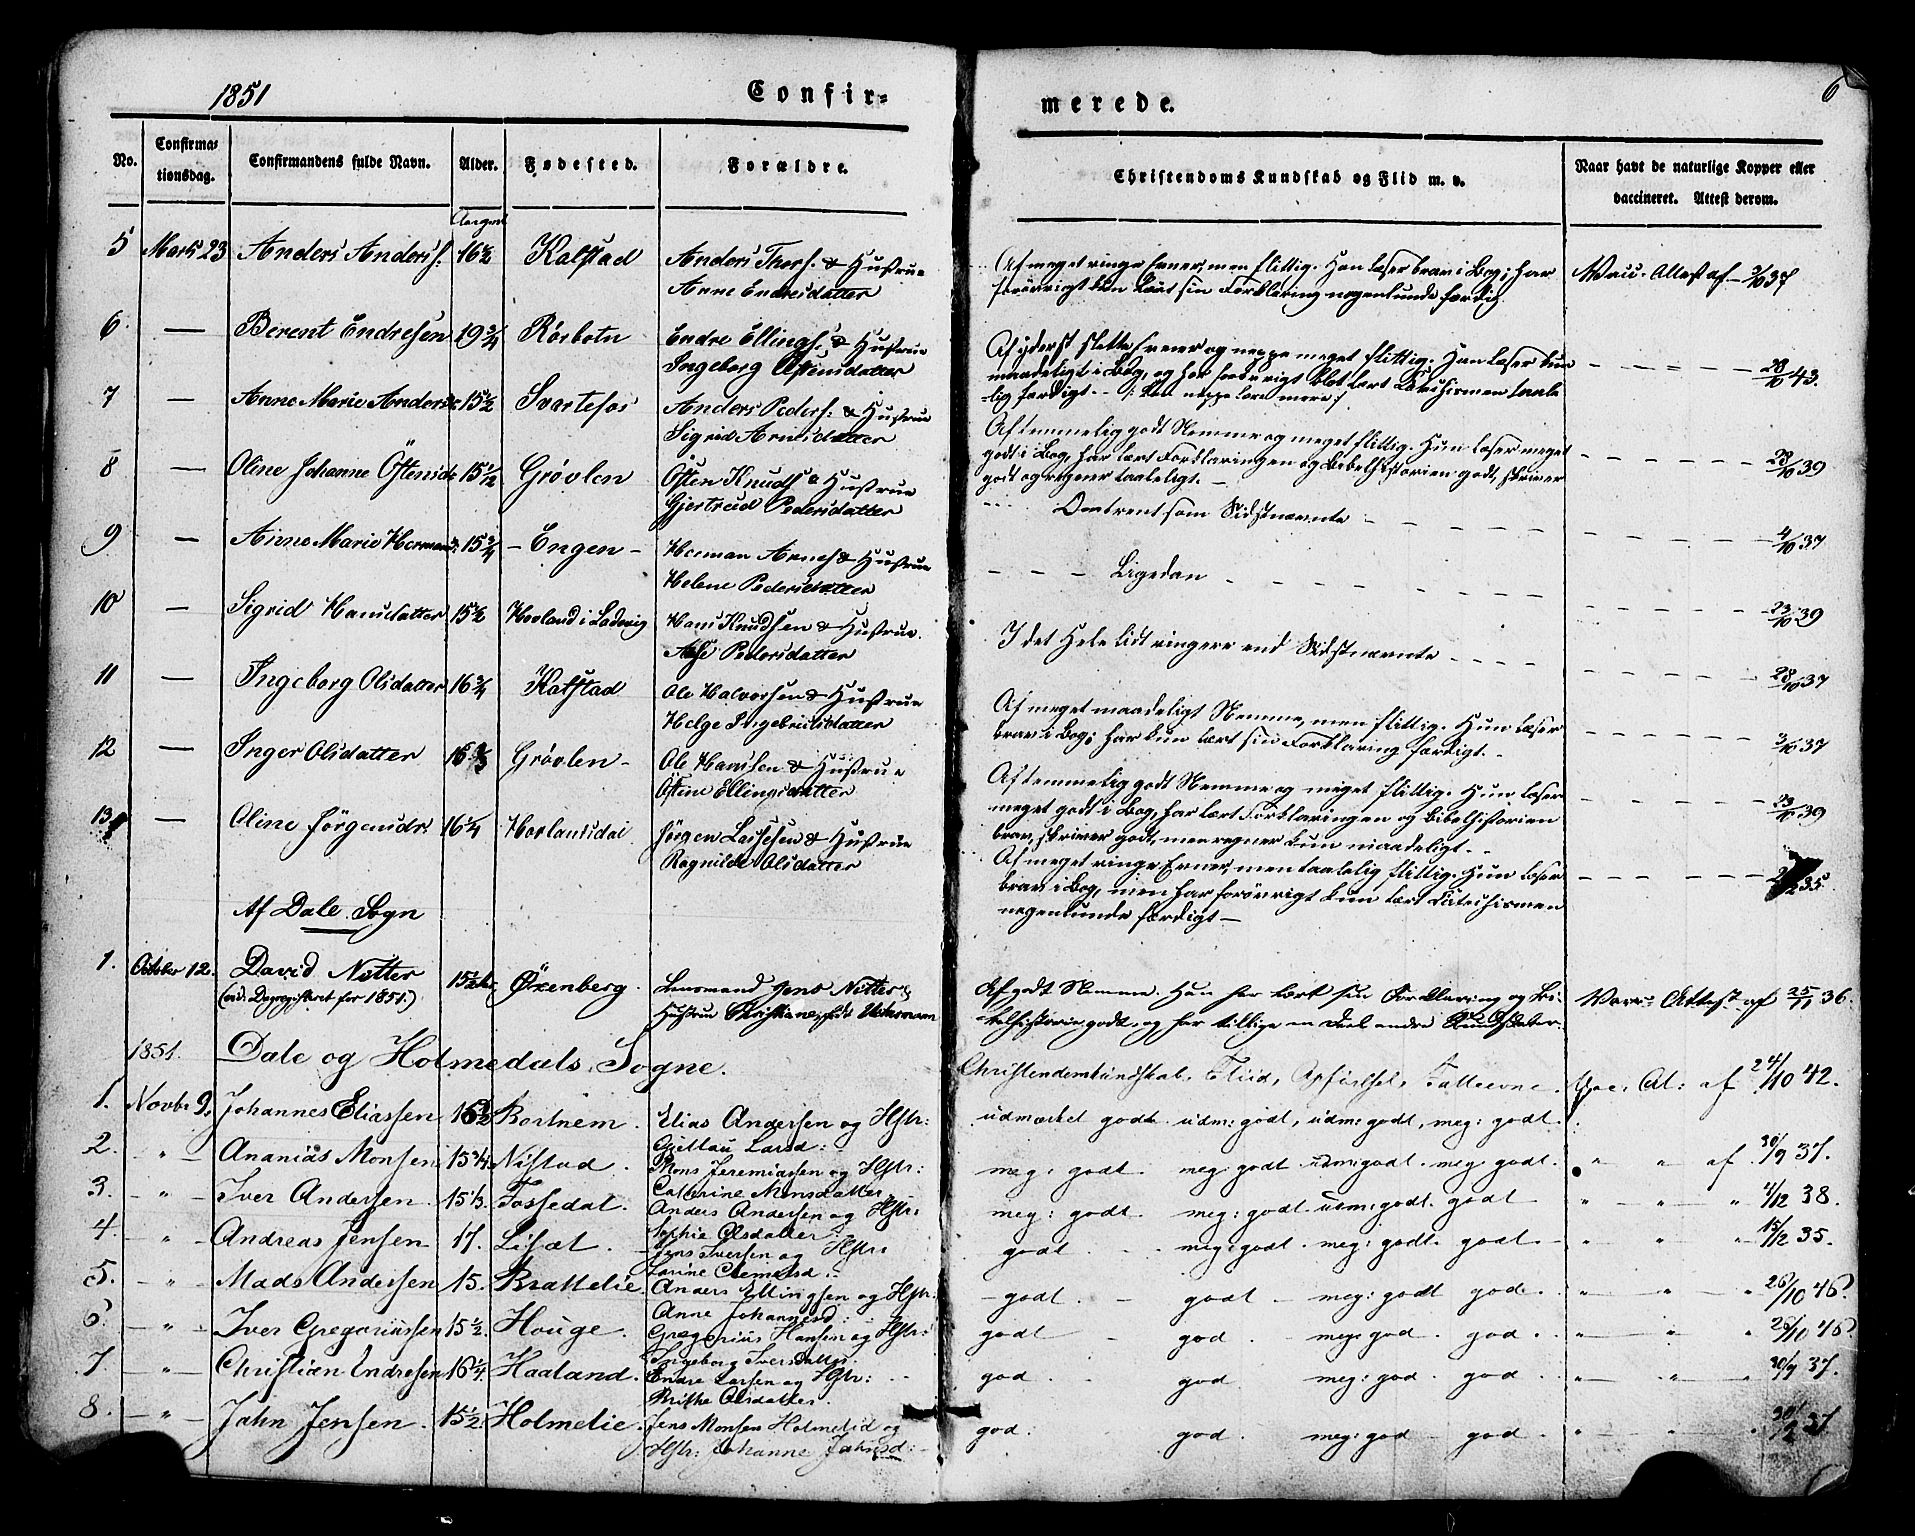 1851 Confir= merede. 6
No. Confirma= tionsdag. Confirmandens fulde Navn. Alder. Fødested. Forældre. Christendoms Kundskab og Flid m. v. Naar havt de naturlige Kopper eller vaccineret. Attest derom.
5 Marts 23 Anders Anders: 16½ Kalstad Anders Thors: & Hustrue
Anne Endresdatter
Af meget ringe Evner, men flittig. Han læser brav i Bog; har
forövrigt kun lært sin Forklaring nogenlunde færdig.
Attest af 3/10 37
6. — Berent Endresen 19¾ Rörbotn Endre Ellings: & Hustrue
Ingeborg Östensdatter
Af yderst slette Evner og neppe meget flittig. Han læser kun
maadeligt i Bog, og har forövrigt blot lært Catechismen taale
=lig færdigt.
28/10 43.
7 — Anne Marie Anders: 15½ Svartefos Anders Peders: & Hustrue
Sigrid Arnesdatter
Af temmelig godt Nemme og meget flittig. Hun læser meget
godt i Bog, har lært Forklaringen og Bibelhistorien godt, skriver
godt og regner taaleligt. —
28/10 39
8 — Oline Johanne Östensd: 15½ Grövlen Östen Knuds: & Hustrue
Gjertrud Pedersdatter
Omtrent som Sidstnævnte
4/10 37
9 — Anne Marie Hermans: 15¾ - Engen - Herman Arnes: & Hustrue
Helene Pedersdatter
Ligedan
23/10 39
10 — Sigrid Hansdatter 15½ Hovland i Ladvig Hans Knudsen & Hustrue.
Pedersdatter
I det Hele lidt ringere end Sidstnævnte
28/10 37
11 — Ingeborg Olsdatter 16¾ Kalstad Ole Halvorsen & Hustrue
Helge Ingebrigtsdatter
Af meget maadeligt Nemme, men flittig. Hun læser
brav i Bog; har kun lært sin Forklaring færdigt. -
3/10 37
12 — Inger Olsdatter 16 Grövlen - Ole Hansen & Hustrue
Östine Ellingsdatter
Af temmelig godt Nemme og meget flittig. Hun læser
meget godt i Bog, har lært Forklaringen og Bibelhistorien
brav, skriver godt, men regner kun maadeligt. -
23/10 39
13 — Oline Jörgensdr: 16¼ Hovlandsdal Jörgen Lassesen & Hustrue
Ragnilde Olsdatter
Af meget ringe Evner, men taalelig flittig. Hun læser
brav i Bog, men har forövrigt kun lært Catechismen
nogenlunde færdigt —
35
Af Dale Sogn
1. October 12. David Nitter 15½ Öxenberg. Lensmand Jens Nitter &
(vid. Dagregisteret for 1851.) Hustrue Christiane, født
Af godt Nemme. Han har lært sin Forklaring og Bi-
belhistorie godt, og har tillige en Deel andre Kundskaber.
Vacc: Attest af 25/11 36.
1851. Dale og Holmedals Sogne.
Christendomskundskab, Fliid, Opførsel, Fatteevne.
1. Novbr 9. Johannes Eliassen 15½ Bortnem. Elias Andersen og Hstr:
Larsd:
udmærket godt udm: godt, udm: godt, meg: godt. Vac: At: af 24/10 42.
2. - " - Ananias Monsen 15¾ Nistad. Mons Jeremiassen og Hstr:
Catherine Monsdatter
meg: godt meg: godt udm: godt. meg: godt. " " af 30/9 37.
3. - " - Iver Andersen 15⅓. Fossedal. Anders Andersen og Hstr:
Sophie Olsdatter:
meg: godt. meg: godt udm: godt. godt " " " 4/12 38.
4. - " - Andreas Jensen 17. Lisæt. Jens Iversen og Hstr:
Larine Clemetsd:
godt meg: godt meg: godt. godt. " " " 15/2 35.
5. - " - Mads Andersen 15. Brattelie. Anders Ellingsen og Hstr:
Anne Johannesd:
godt. godt meg: godt god. " " " 26/10 46.
6. - " - Iver Gregoriussen 15½. Houge. Gregorius Hansen og Hstr:
Ingeborg Iversdatter.
godt god. meg: god. god. " " " 26/10 46.
7 - " - Christian Endresen 16¼ Haaland. Endre Larsen og Hstr:
Brithe Olsdatter.
god god. meg: god. god " " " 30/9 37.
8. - " - John Jensen. 15½. Holmelie. Jens Monsen Holmelid og
Hstr: Johanne Johnsd:
god: god. meg: god god. " " " 37